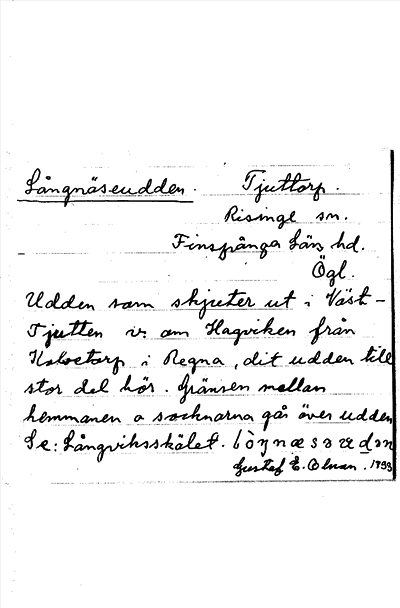 Långnäsudden. Tjuttorp.
Risinge sn.
Finspånga Läns hd.
Ögl.
Udden som skjuter ut i Väst-
Tjutten v. om Hagviken från
i Regna, dit udden till
stor del hör. Gränsen mellan
hemmanen o socknarna går över udden
Se: Långviksskälet.
Gustaf E. Olman. 1933